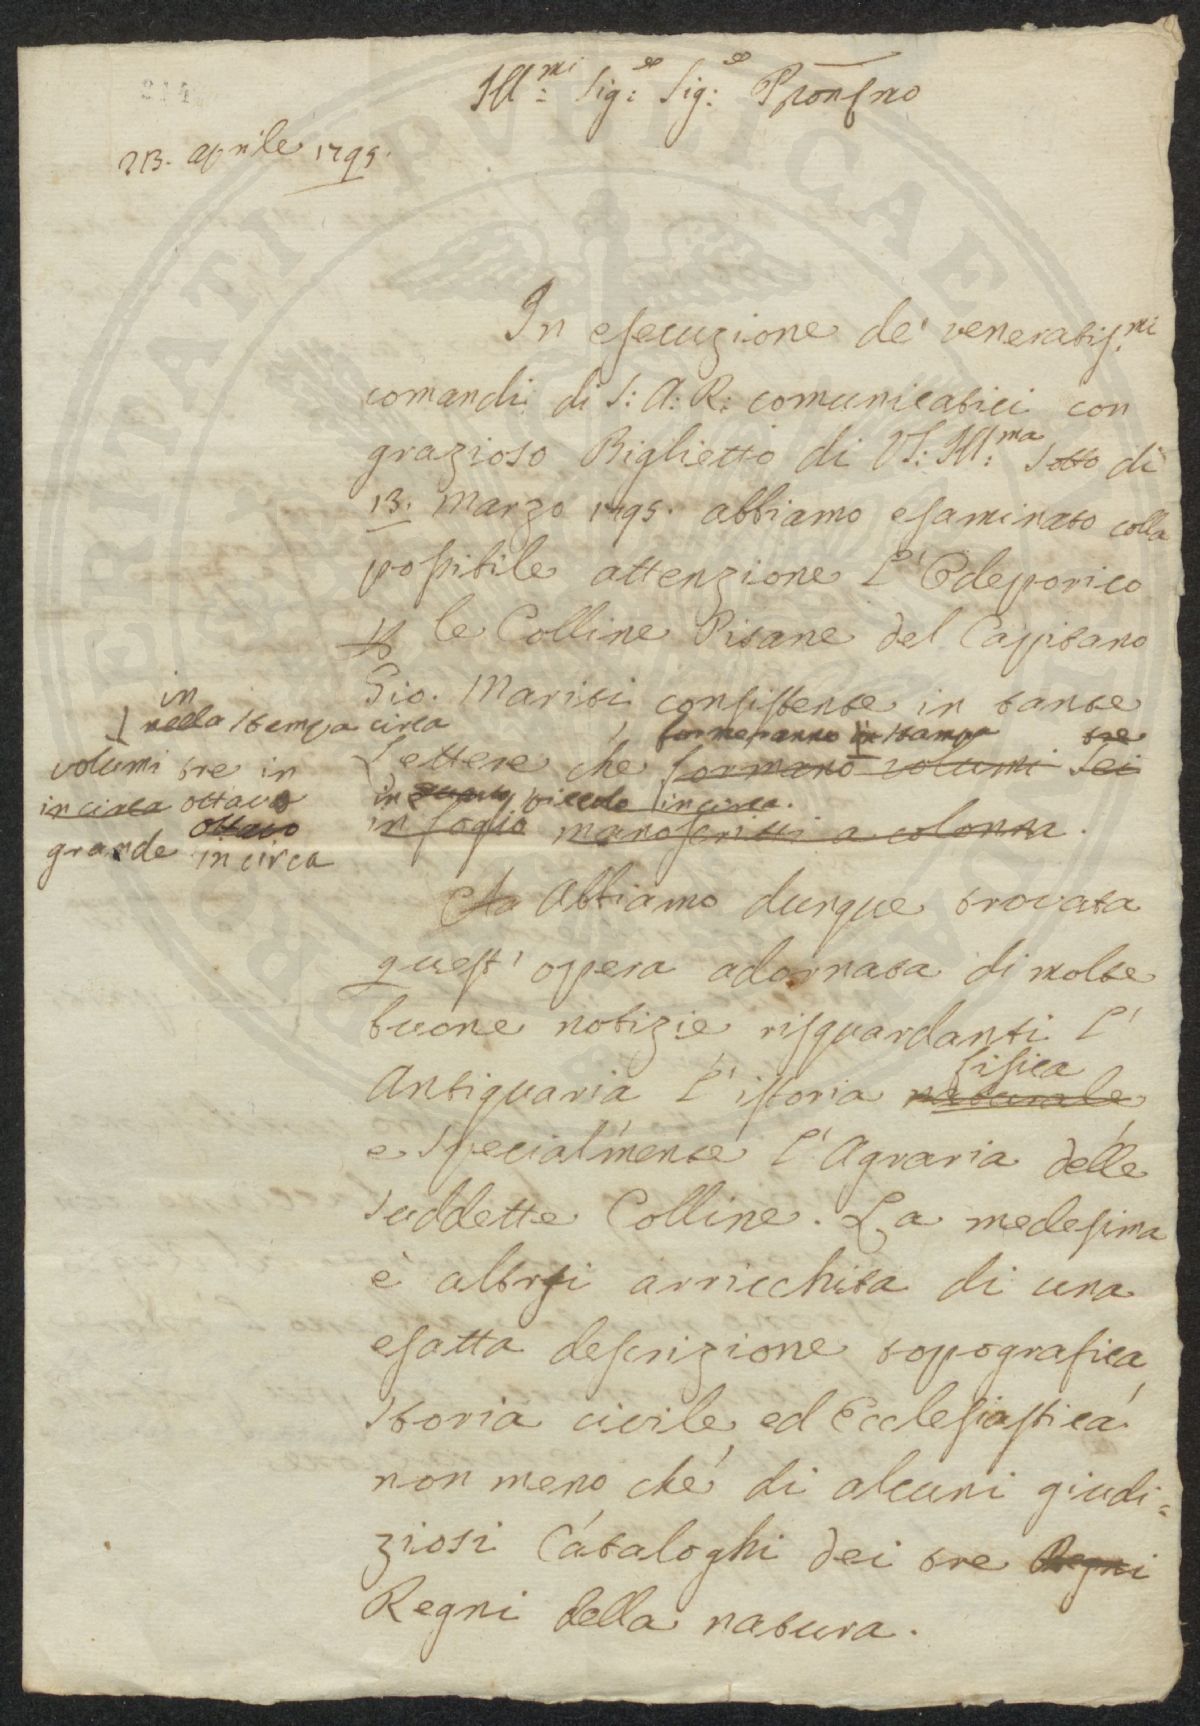 Ill:mi Sig:e Sig:e Pron Pno
23. aprile 1795.
In esecuzione de' veneratis:mi
comandi di S: A: R: comunicatici con
grazioso Biglietto di VS: Ill:ma sotto di
13. Marzo 1795. abbiamo esaminato colla
possibile attenzione l'Odeporico
le Colline Pisane del Capitano
Gio. Mariti consistente in tante
formeranno in stampa tre
Lettere che formano volumi sei
in piccolo incirca.
in foglio manoscritti a colonna.
in
nella stampa circa
volumi tre in
in circa ottavo
ottavo
grande in circa
Abbiamo dunque trovata
quest' opera adornata di molte
buone notizie risguardanti l'
Antiquaria l'istoria naturale
fisica
e specialmente l'Agraria delle
suddette Colline. La medesima
è altrsi arricchita di una
esatta descrizione topografica,
storia civile, ed Ecclesiastica
non meno che di alcuni giudi=
ziosi Cataloghi dei tre Regni
Regni della natura.
PVBLICAE